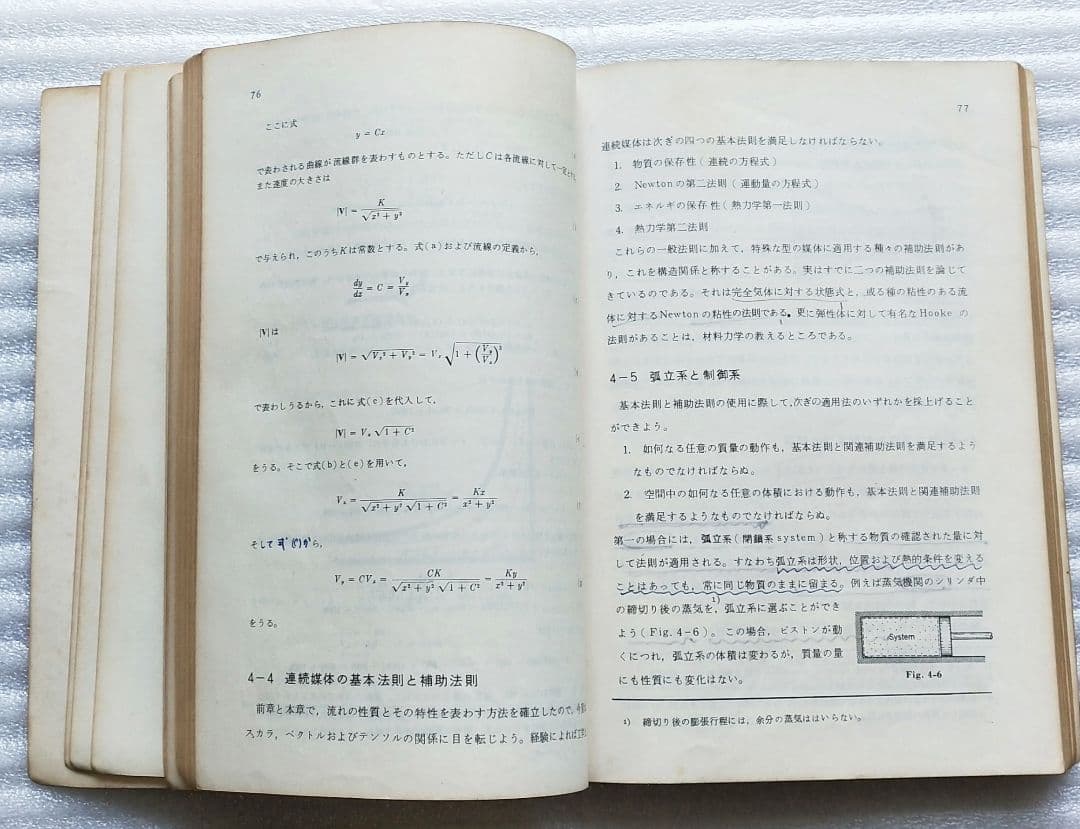 76
ここに式
y = Cz
で表わされる曲線が流線群を表わすものとする。ただしCは各流線に対して一定とする
また速度の大きさは
|V| = K / √(z² + y²)
で与えられ，このうちKは常数とする。式(a)および流線の定義から，
dy/dz = C = Vy/Vz
|V|は
|V| = √(Vz² + Vy²) = Vz √(1 + (Vy/Vz)²)
で表わしうるから，これに式(c)を代入して，
|V| = Vz √(1 + C²)
をうる。そこで式(b)と(e)を用いて，
Vz = K / (√(z² + y²) √(1 + C²)) = Kz / (z² + y²)
そして式(f)から，
Vy = CVz = CK / (√(z² + y²) √(1 + C²)) = Ky / (z² + y²)
をうる。
4-4 連続媒体の基本法則と補助法則
前章と本章で，流れの性質とその特性を表わす方法を確立したので，
スカラ，ベクトルおよびテンソルの関係に目を転じよう。経験によれば
77
連続媒体は次ぎの四つの基本法則を満足しなければならない。
1. 物質の保存性(連続の方程式)
2. Newtonの第二法則(運動量の方程式)
3. エネルギの保存性(熱力学第一法則)
4. 熱力学第二法則
これらの一般法則に加えて，特殊な型の媒体に適用する種々の補助法則があ
り，これを構造関係と称することがある。実はすでに二つの補助法則を論じて
きているのである。それは完全気体に対する状態式と，或る種の粘性のある流
体に対するNewtonの粘性の法則である。更に弾性体に対して有名なHookeの
法則があることは，材料力学の教えるところである。
4-5 弧立系と制御系
基本法則と補助法則の使用に際して，次ぎの適用法のいずれかを採上げること
ができよう。
1. 如何なる任意の質量の動作も，基本法則と関連補助法則を満足するよう
なものでなければならぬ。
2. 空間中の如何なる任意の体積における動作も，基本法則と関連補助法則
を満足するようなものでなければならぬ。
第一の場合には，弧立系(閉鎖系system)と称する物質の確認された量に対
して法則が適用される。すなわち弧立系は形状，位置および熱的条件を変える
ことはあっても，常に同じ物質のままに留まる。例えば蒸気機関のシリンダ中
の締切り後の蒸気を，弧立系に選ぶことができ
よう(Fig. 4-6)¹⁾。この場合，ピストンが動
くにつれ，弧立系の体積は変わるが，質量の量
にも性質にも変化はない。
System
Fig. 4-6
1) 締切り後の膨張行程には，余分の蒸気ははいらない。